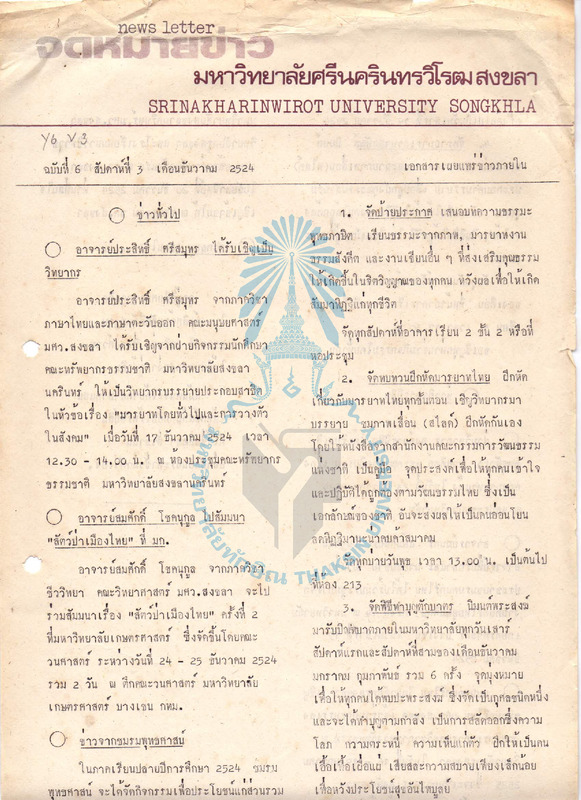 news letter
จดหมายข่าว
มหาวิทยาลัยศรีนครินทรวิโรฒ สงขลา
SRINAKHARINWIROT UNIVERSITY SONGKHLA
Y6 V.3
ฉบับที่ 6 สัปดาห์ที่ 3 เดือนธันวาคม 2524
เอกสารเผยแพร่ข่าวภายใน
ข่าวทั่วไป
อาจารย์ประสิทธิ์ ศรีสมุทร ได้รับเชิญเป็น
วิทยากร
อาจารย์ประสิทธิ์ ศรีสมุทร จากภาควิชา
ภาษาไทยและภาษาตะวันออก คณะมนุษยศาสตร์
มศว.สงขลา ได้รับเชิญจากฝ่ายกิจกรรมนักศึกษา
คณะทรัพยากรธรรมชาติ มหาวิทยาลัยสงขลา
นครินทร์ ให้เป็นวิทยากรบรรยายประกอบสาธิต
ในหัวข้อเรื่อง "มารยาทโดยทั่วไปและการวางตัว
ในสังคม" เมื่อวันที่ 17 ธันวาคม 2524 เวลา
12.30 - 14.00 น. ณ ห้องประชุมคณะทรัพยากร
ธรรมชาติ มหาวิทยาลัยสงขลานครินทร์
อาจารย์สมศักดิ์ โชคนุกูล ไปสัมมนา
"สัตว์ป่าเมืองไทย" ที่ มก.
อาจารย์สมศักดิ์ โชคนุกูล จากภาควิชา
ชีววิทยา คณะวิทยาศาสตร์ มศว.สงขลา จะไป
ร่วมสัมมนาเรื่อง "สัตว์ป่าเมืองไทย" ครั้งที่ 2
ที่มหาวิทยาลัยเกษตรศาสตร์ ซึ่งจัดขึ้นโดยคณะ
วนศาสตร์ ระหว่างวันที่ 24 - 25 ธันวาคม 2524
รวม 2 วัน ณ ตึกคณะวนศาสตร์ มหาวิทยาลัย
เกษตรศาสตร์ บางเขน กทม.
ข่าวจากชมรมพุทธศาสน์
ในภาคเรียนปลายปีการศึกษา 2524 ชมรม
พุทธศาสน์ จะได้จัดกิจกรรมเพื่อประโยชน์แก่ส่วนรวม
1. จัดป้ายประกาศ เสนอบทความธรรมะ
พุทธภาษิต เรียนธรรมะจากภาพ, มารยาทงาม
ธรรมสังคีต และงานเขียนอื่น ๆ ที่ส่งเสริมคุณธรรม
ให้เกิดขึ้นในจิตวิญญาณของทุกคน หวังผลเพื่อให้เกิด
สัมมาทิฏฐิแก่ทุกชีวิต
จัดทุกสัปดาห์ที่อาคารเรียน 2 ชั้น 2 หรือที่
หอประชุม
2. จัดทบทวนฝึกหัดมารยาทไทย ฝึกหัด
เกี่ยวกับมารยาทไทยทุกขั้นตอน เชิญวิทยากรมา
บรรยาย ชมภาพเลื่อน (สไลด์) ฝึกหัดกันเอง
โดยใช้หนังสือจากสำนักงานคณะกรรมการวัฒนธรรม
แห่งชาติ เป็นคู่มือ จุดประสงค์เพื่อให้ทุกคนเข้าใจ
และปฏิบัติให้ถูกต้องตามวัฒนธรรมไทย ซึ่งเป็น
เอกลักษณ์ของชาติ อันจะส่งผลให้เป็นคนอ่อนโยน
ลดทิฏฐิมานะน่าคบค้าสมาคม
จัดทุกบ่ายวันพุธ เวลา 13.00 น. เป็นต้นไป
ที่ห้อง 213
3. จัดพิธีทำบุญตักบาตร นิมนต์พระสงฆ์
มารับบิณฑบาตภายในมหาวิทยาลัยทุกวันเสาร์
สัปดาห์แรกและสัปดาห์ที่สามของเดือนธันวาคม
มกราคม กุมภาพันธ์ รวม 6 ครั้ง จุดมุ่งหมาย
เพื่อให้ทุกคนได้พบปะพระสงฆ์ ซึ่งจัดเป็นกุศลชนิดหนึ่ง
และจะได้ทำบุญตามกำลัง เป็นการสลัดออกซึ่งความ
โลภ ความตระหนี่ ความเห็นแก่ตัว ฝึกให้เป็นคน
เอื้อเฟื้อเผื่อแผ่ เสียสละความสบายเพียงเล็กน้อย
เพื่อหวังประโยชน์สุขอันไพบูลย์
มหาวิทยาลัยทักษิณ THAKSIN UNIVERSITY